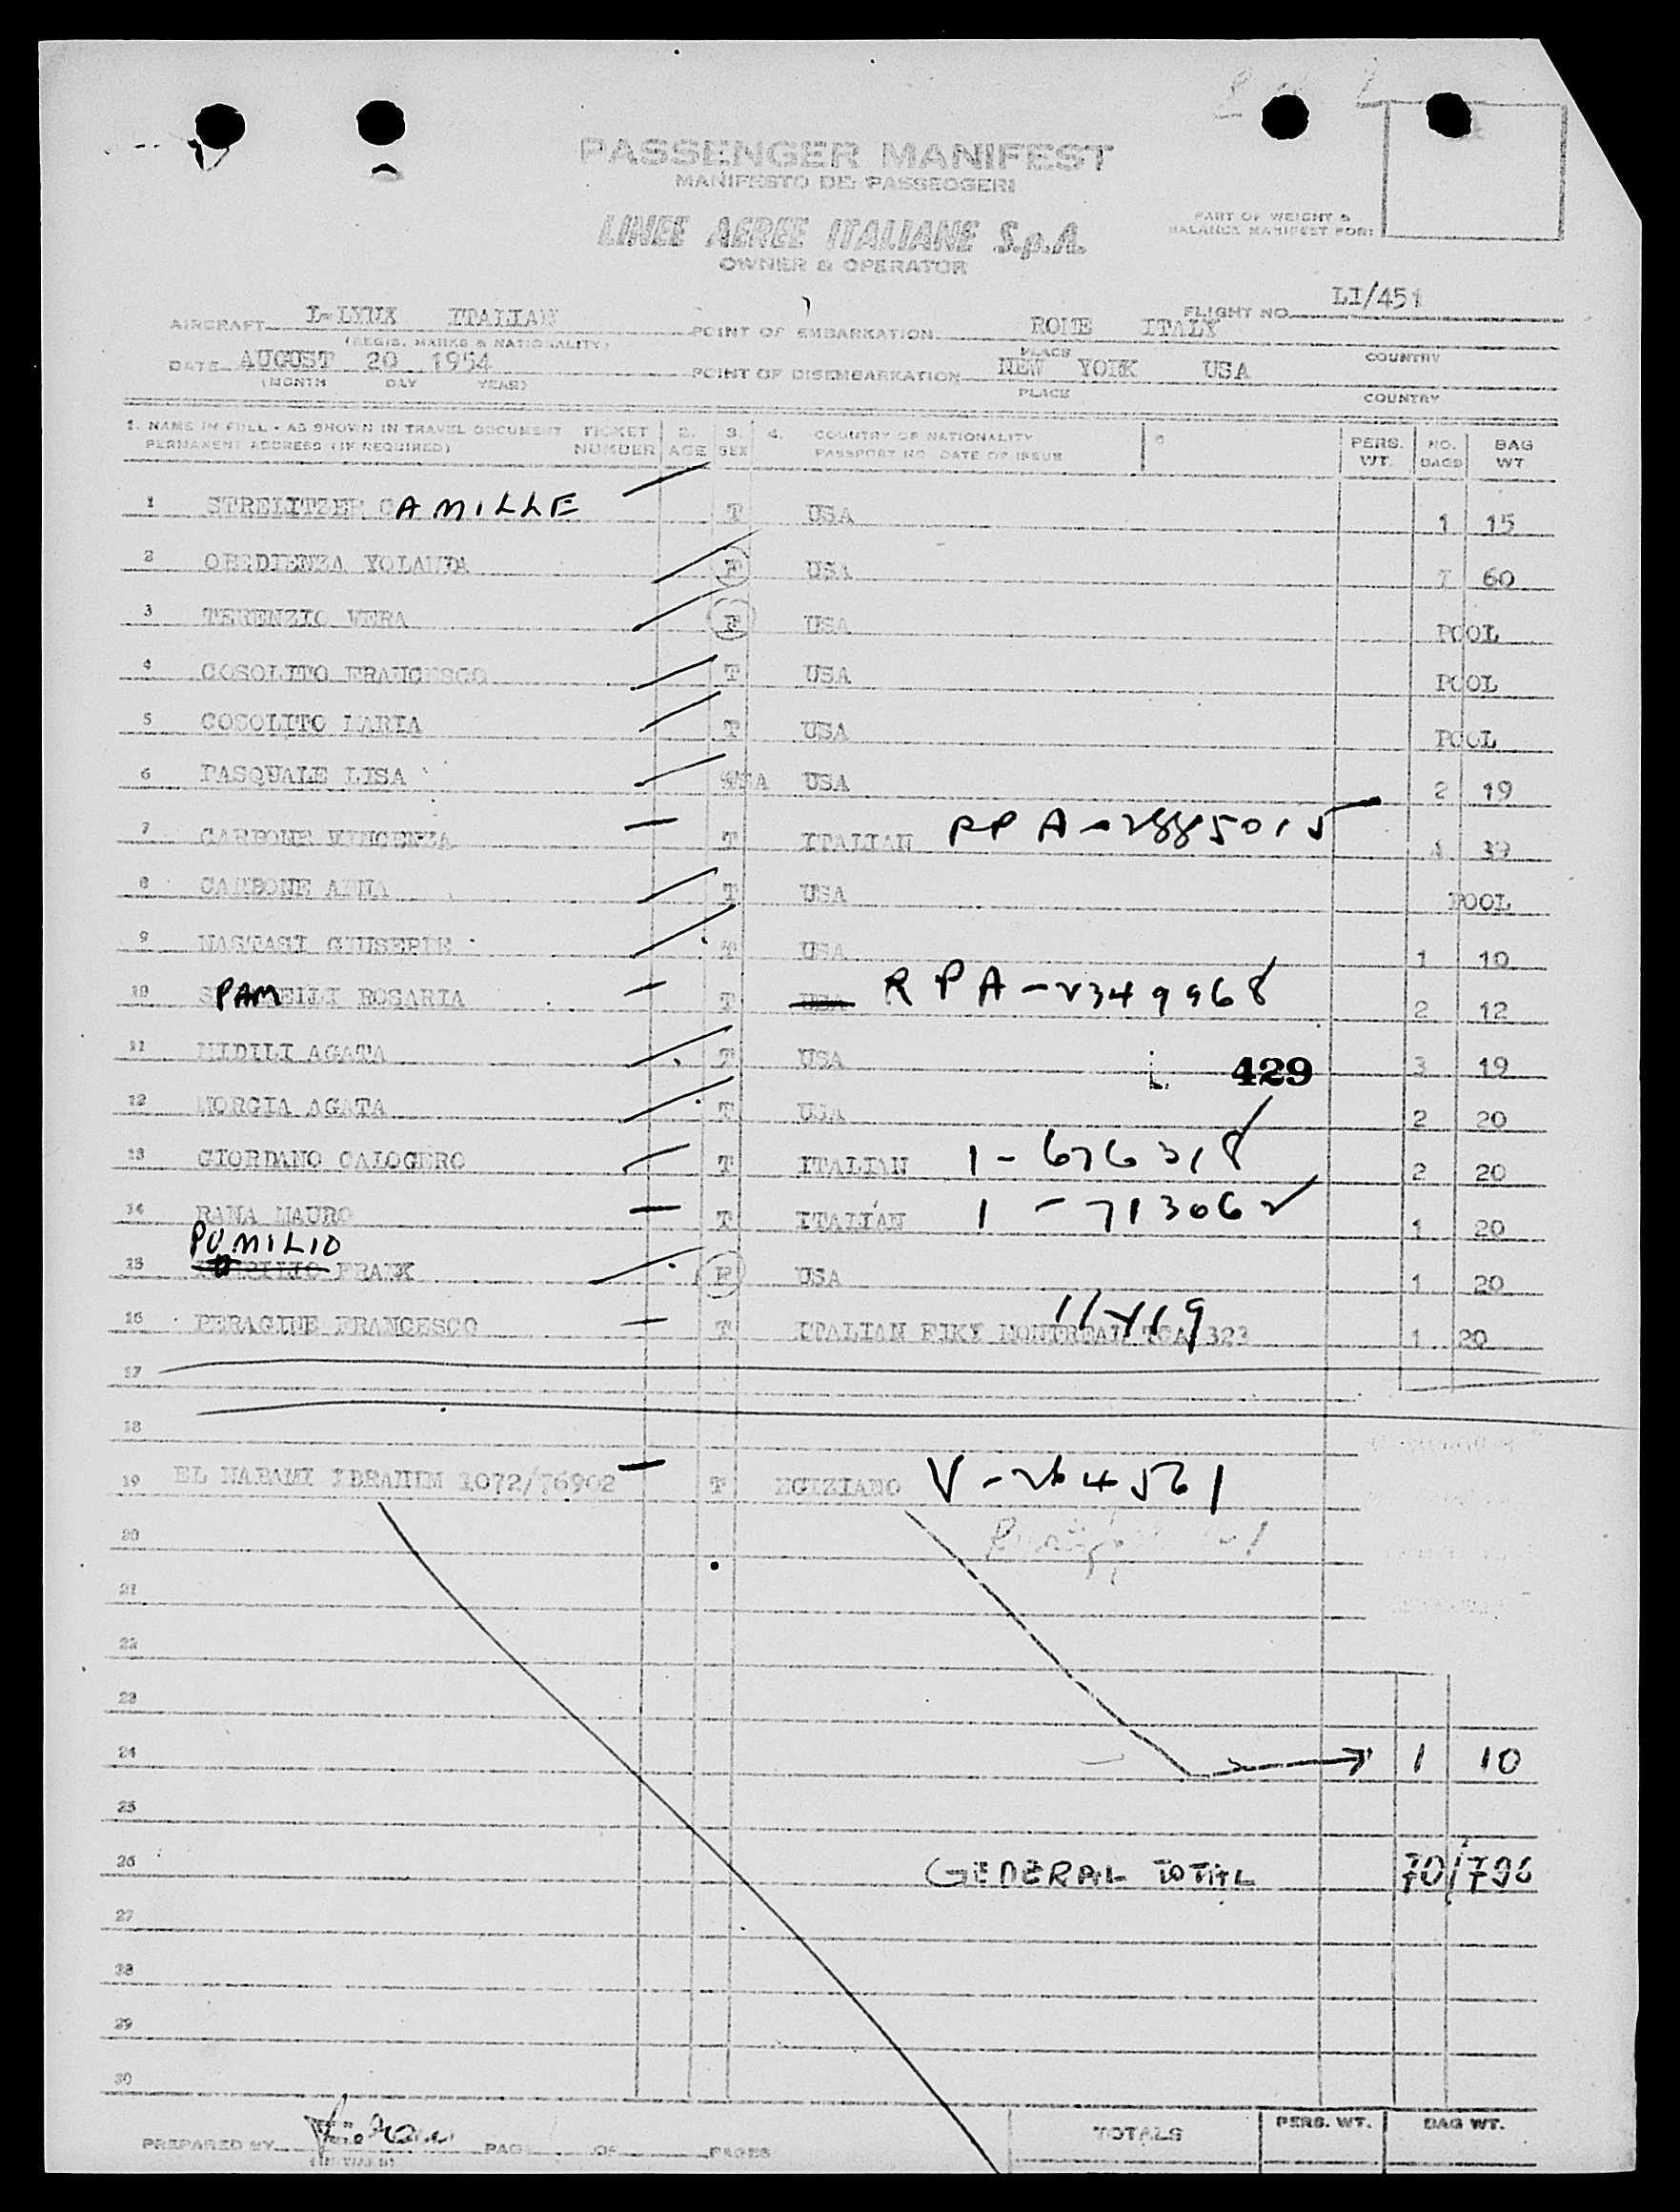 PASSENGER MANIFEST
MANIFESTO DEI PASSEGGERI
LINEE AEREE ITALIANE S.p.A.
OWNER & OPERATOR
PART OF WEIGHT &
BALANCE MANIFEST FOR:
FLIGHT NO. LI/451
AIRCRAFT ITALIAN POINT OF EMBARKATION ROME ITALY
(REGIS. MARKS & NATIONALITY) PLACE COUNTRY
DATE AUGUST 20 1954 POINT OF DISEMBARKATION NEW YORK USA
(MONTH DAY YEAR) PLACE COUNTRY
1. NAME IN FULL - AS SHOWN IN TRAVEL DOCUMENT TICKET 2. 3. 4. COUNTRY OF NATIONALITY PERS. NO. BAG
PERMANENT ADDRESS (IF REQUIRED) NUMBER AGE SEX PASSPORT NO. DATE OF ISSUE WT. BAGS WT
1 STRELITZER CAMILLE T USA 1 15
2 OBEDIENZA YOLANDA F USA 7 60
3 TERENZIO VERA F USA POOL
4 COSOLITO FRANCESCO T USA POOL
5 COSOLITO MARIA T USA POOL
6 PASQUALE LISA USA 2 19
7 CARBONE VINCENZA T ITALIAN 4 39
8 CARBONE ANNA T USA POOL
9 NASTASI GIUSEPPE T USA 1 10
10 ROSARIA T USA R P A-2349968 2 12
11 MIDILI AGATA T USA 429 3 19
12 MORGIA AGATA T USA 2 20
13 GIORDANO CALOGERO T ITALIAN 1-676318 2 20
14 RANA MAURO T ITALIAN 1-713062 1 20
PUMILIO
15 FRANK F USA 1 20
16 PERAGINE FRANCESCO T ITALIAN MONTREAL TCA 323 1 20
17
18
19 EL NABAMI IBRAHIM 1072/76902 T EGIZIANO V-264561
20
21
22
23
24 1 10
25
26 GENERAL TOTAL 70/796
27
28
29
30
PREPARED BY PAGE OF PAGES TOTALS PERS. WT. BAG WT.
(INITIALS)